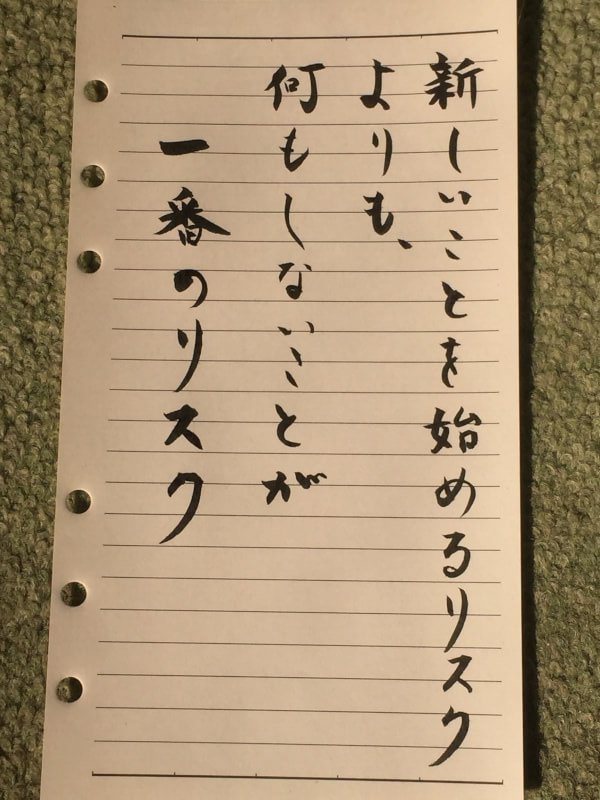 新しいことを始めるリスク
よりも、
何もしないことが
一番のリスク